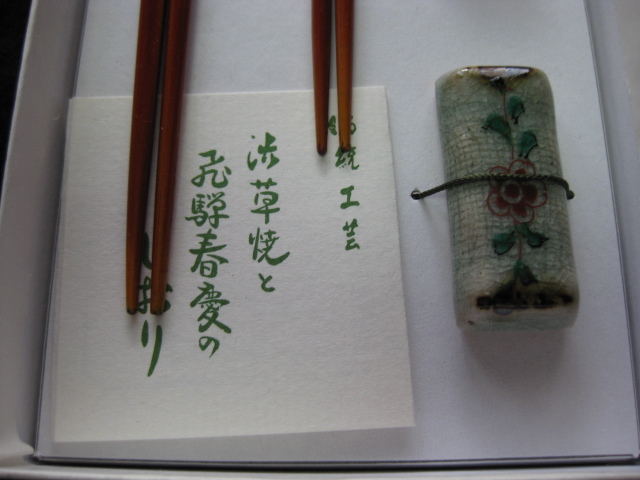 伝統工芸
渋草焼と
飛騨春慶の
しおり